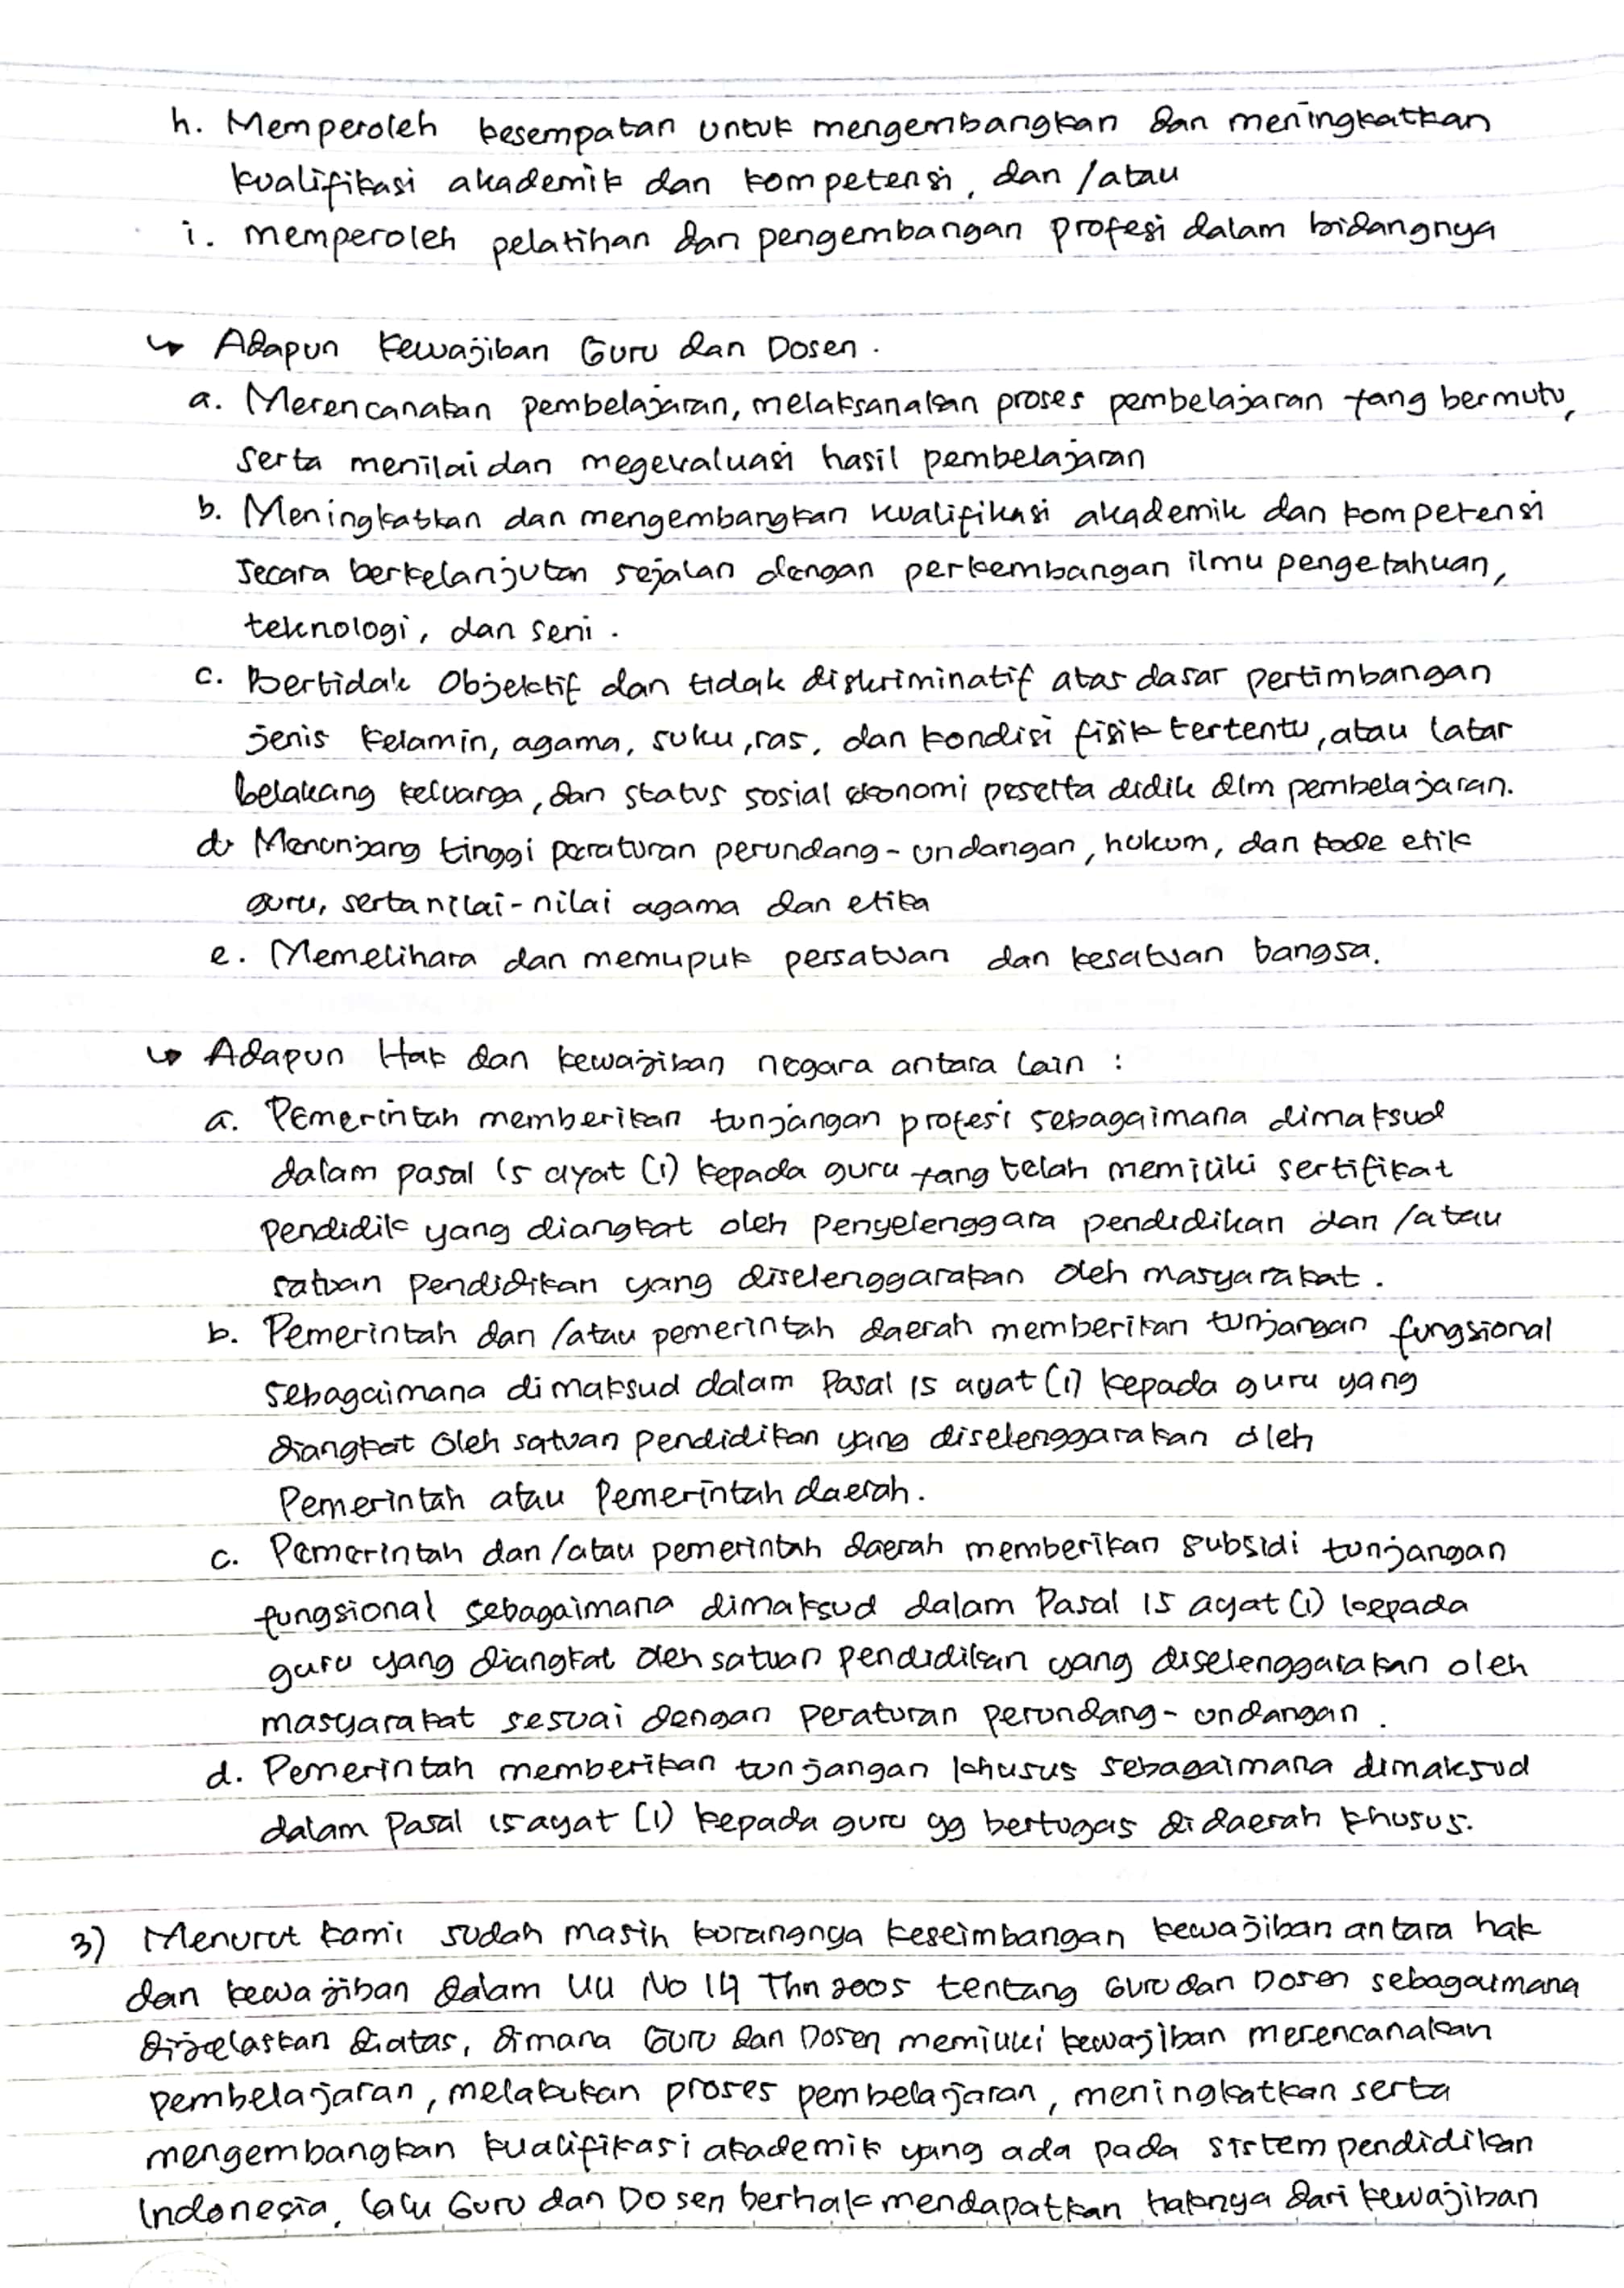 h. Memperoleh kesempatan untuk mengembangkan dan meningkatkan
kualifikasi akademik dan kompetensi, dan /atau
i. memperoleh pelatihan dan pengembangan profesi dalam bidangnya
↳ Adapun kewajiban Guru dan Dosen.
a. Merencanakan pembelajaran, melaksanakan proses pembelajaran yang bermutu,
serta menilai dan megevaluasi hasil pembelajaran
b. Meningkatkan dan mengembangkan kualifikasi akademik dan kompetensi
secara berkelanjutan sejalan dengan perkembangan ilmu pengetahuan,
teknologi, dan seni.
c. Bertidak Objektif dan tidak diskriminatif atas dasar pertimbangan
jenis kelamin, agama, suku, ras, dan kondisi fisik tertentu, atau latar
belakang keluarga, dan status sosial ekonomi peserta didik dlm pembelajaran.
d. Menunjang tinggi peraturan perundang-undangan, hukum, dan kode etik
guru, serta nilai-nilai agama dan etika
e. Memelihara dan memupuk persatuan dan kesatuan bangsa.
↳ Adapun Hak dan kewajiban negara antara lain :
a. Pemerintah memberikan tunjangan profesi sebagaimana dimaksud
dalam pasal 15 ayat (1) kepada guru yang telah memiliki sertifikat
pendidik yang diangkat oleh penyelenggara pendidikan dan /atau
satuan pendidikan yang diselenggarakan oleh masyarakat.
b. Pemerintah dan /atau pemerintah daerah memberikan tunjangan fungsional
sebagaimana dimaksud dalam Pasal 15 ayat (1) kepada guru yang
diangkat oleh satuan pendidikan yang diselenggarakan oleh
Pemerintah atau Pemerintah daerah.
c. Pemerintah dan /atau pemerintah daerah memberikan subsidi tunjangan
fungsional sebagaimana dimaksud dalam Pasal 15 ayat (1) kepada
guru yang diangkat oleh satuan pendidikan yang diselenggarakan oleh
masyarakat sesuai dengan peraturan perundang-undangan.
d. Pemerintah memberikan tunjangan khusus sebagaimana dimaksud
dalam Pasal 15 ayat (1) kepada guru yg bertugas di daerah khusus.
3) Menurut kami sudah masih kurangnya keseimbangan kewajiban antara hak
dan kewajiban dalam UU No 14 Thn 2005 tentang Guru dan Dosen sebagaimana
dijelaskan diatas, dimana Guru dan Dosen memiliki kewajiban merencanakan
pembelajaran, melakukan proses pembelajaran, meningkatkan serta
mengembangkan kualifikasi akademik yang ada pada sistem pendidikan
Indonesia, lalu Guru dan Dosen berhak mendapatkan haknya dari kewajiban